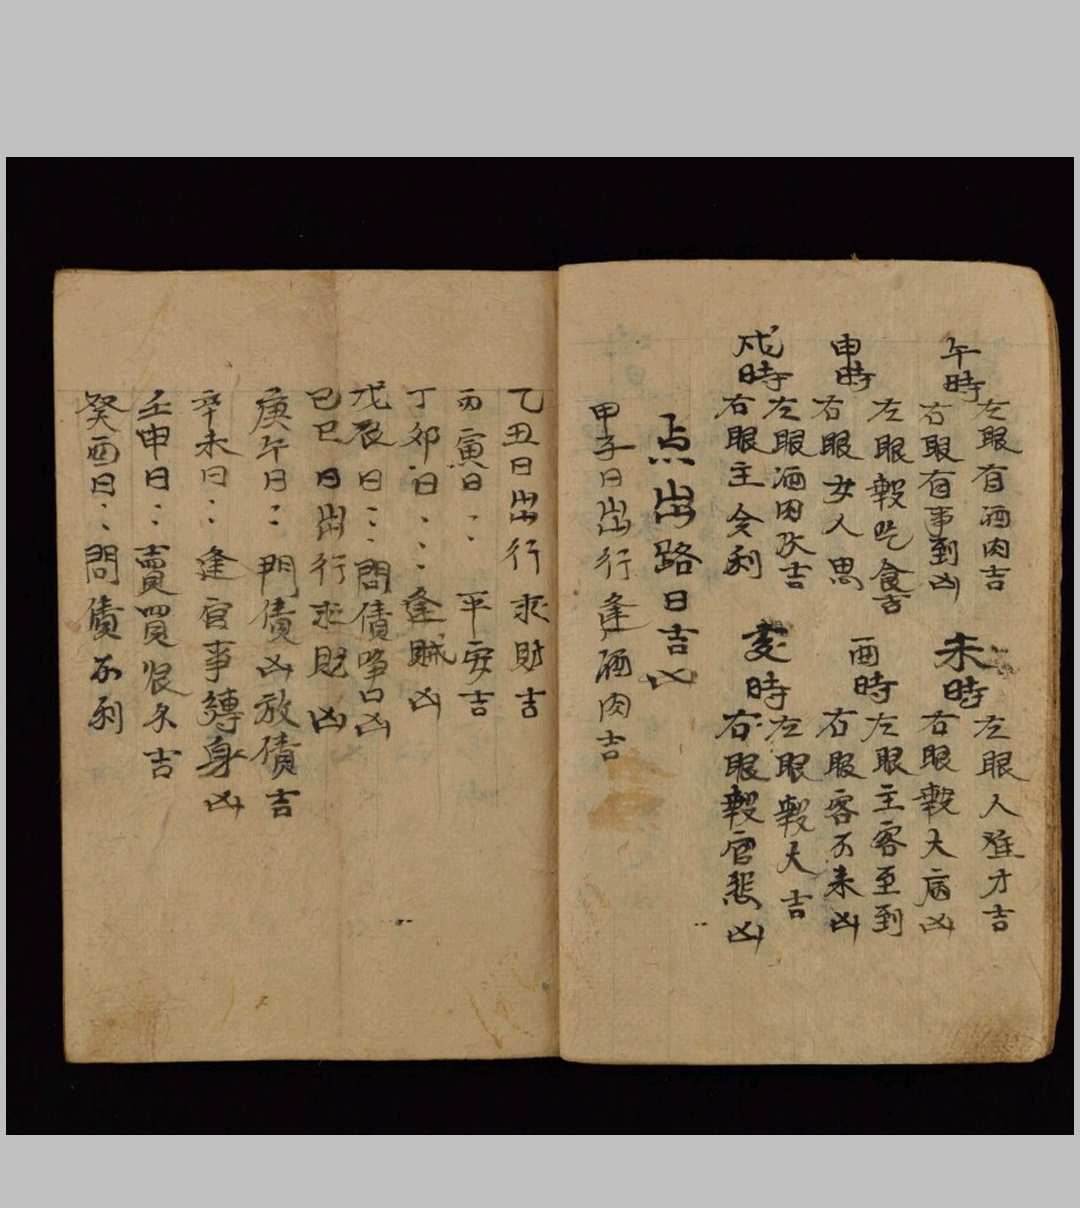 午時
左眼有酒肉吉
右眼有事到凶
未時
左眼人 才吉
右眼報大病凶
申時
左眼報吃食吉
右眼女人思
酉時
左眼主客至到
右眼客不来凶
戌時
左眼酒肉 吉
右眼主 利
亥時
左眼報大吉
右眼報官 凶
点出路日吉凶
甲子日出行逢酒肉吉
乙丑日出行求財吉
丙寅日：平安吉
丁卯日：：逢賊凶
戊辰日：：問債爭口凶
己巳日出行求財凶
庚午日：問債凶放債吉
辛未日：：逢官事 身凶
壬申日：：賣買 吉
癸酉日：：問債不利